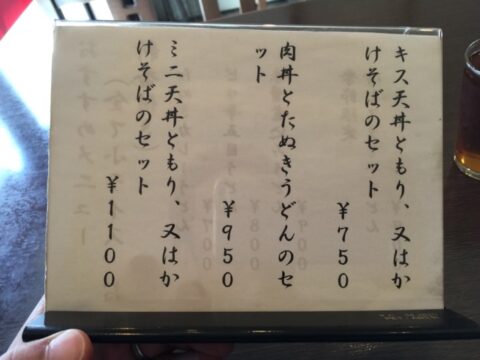 キス天丼ともり、又はか
けそばのセット
¥750
肉丼とたぬきうどんのセ
ット
¥950
ミニ天丼ともり、又はか
けそばのセット
¥1100